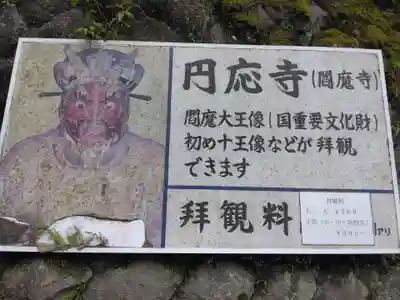 円応寺(閻魔寺)
閻魔大王像(国重要文化財)
初め十王像などが拝観
できます
拝観料
拝観料
アリ